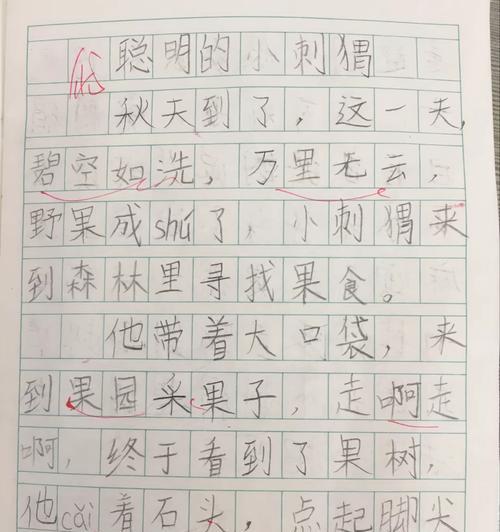 聪明的小刺猬
秋天到了，这一天，
碧空如洗，万里无云，
野果成shú了，小刺猬来
到森林里寻找果食。
他带着大口袋，来
到果园采果子，走啊走
啊，终于看到了果树，
他cǎi着石头，点起脚尖